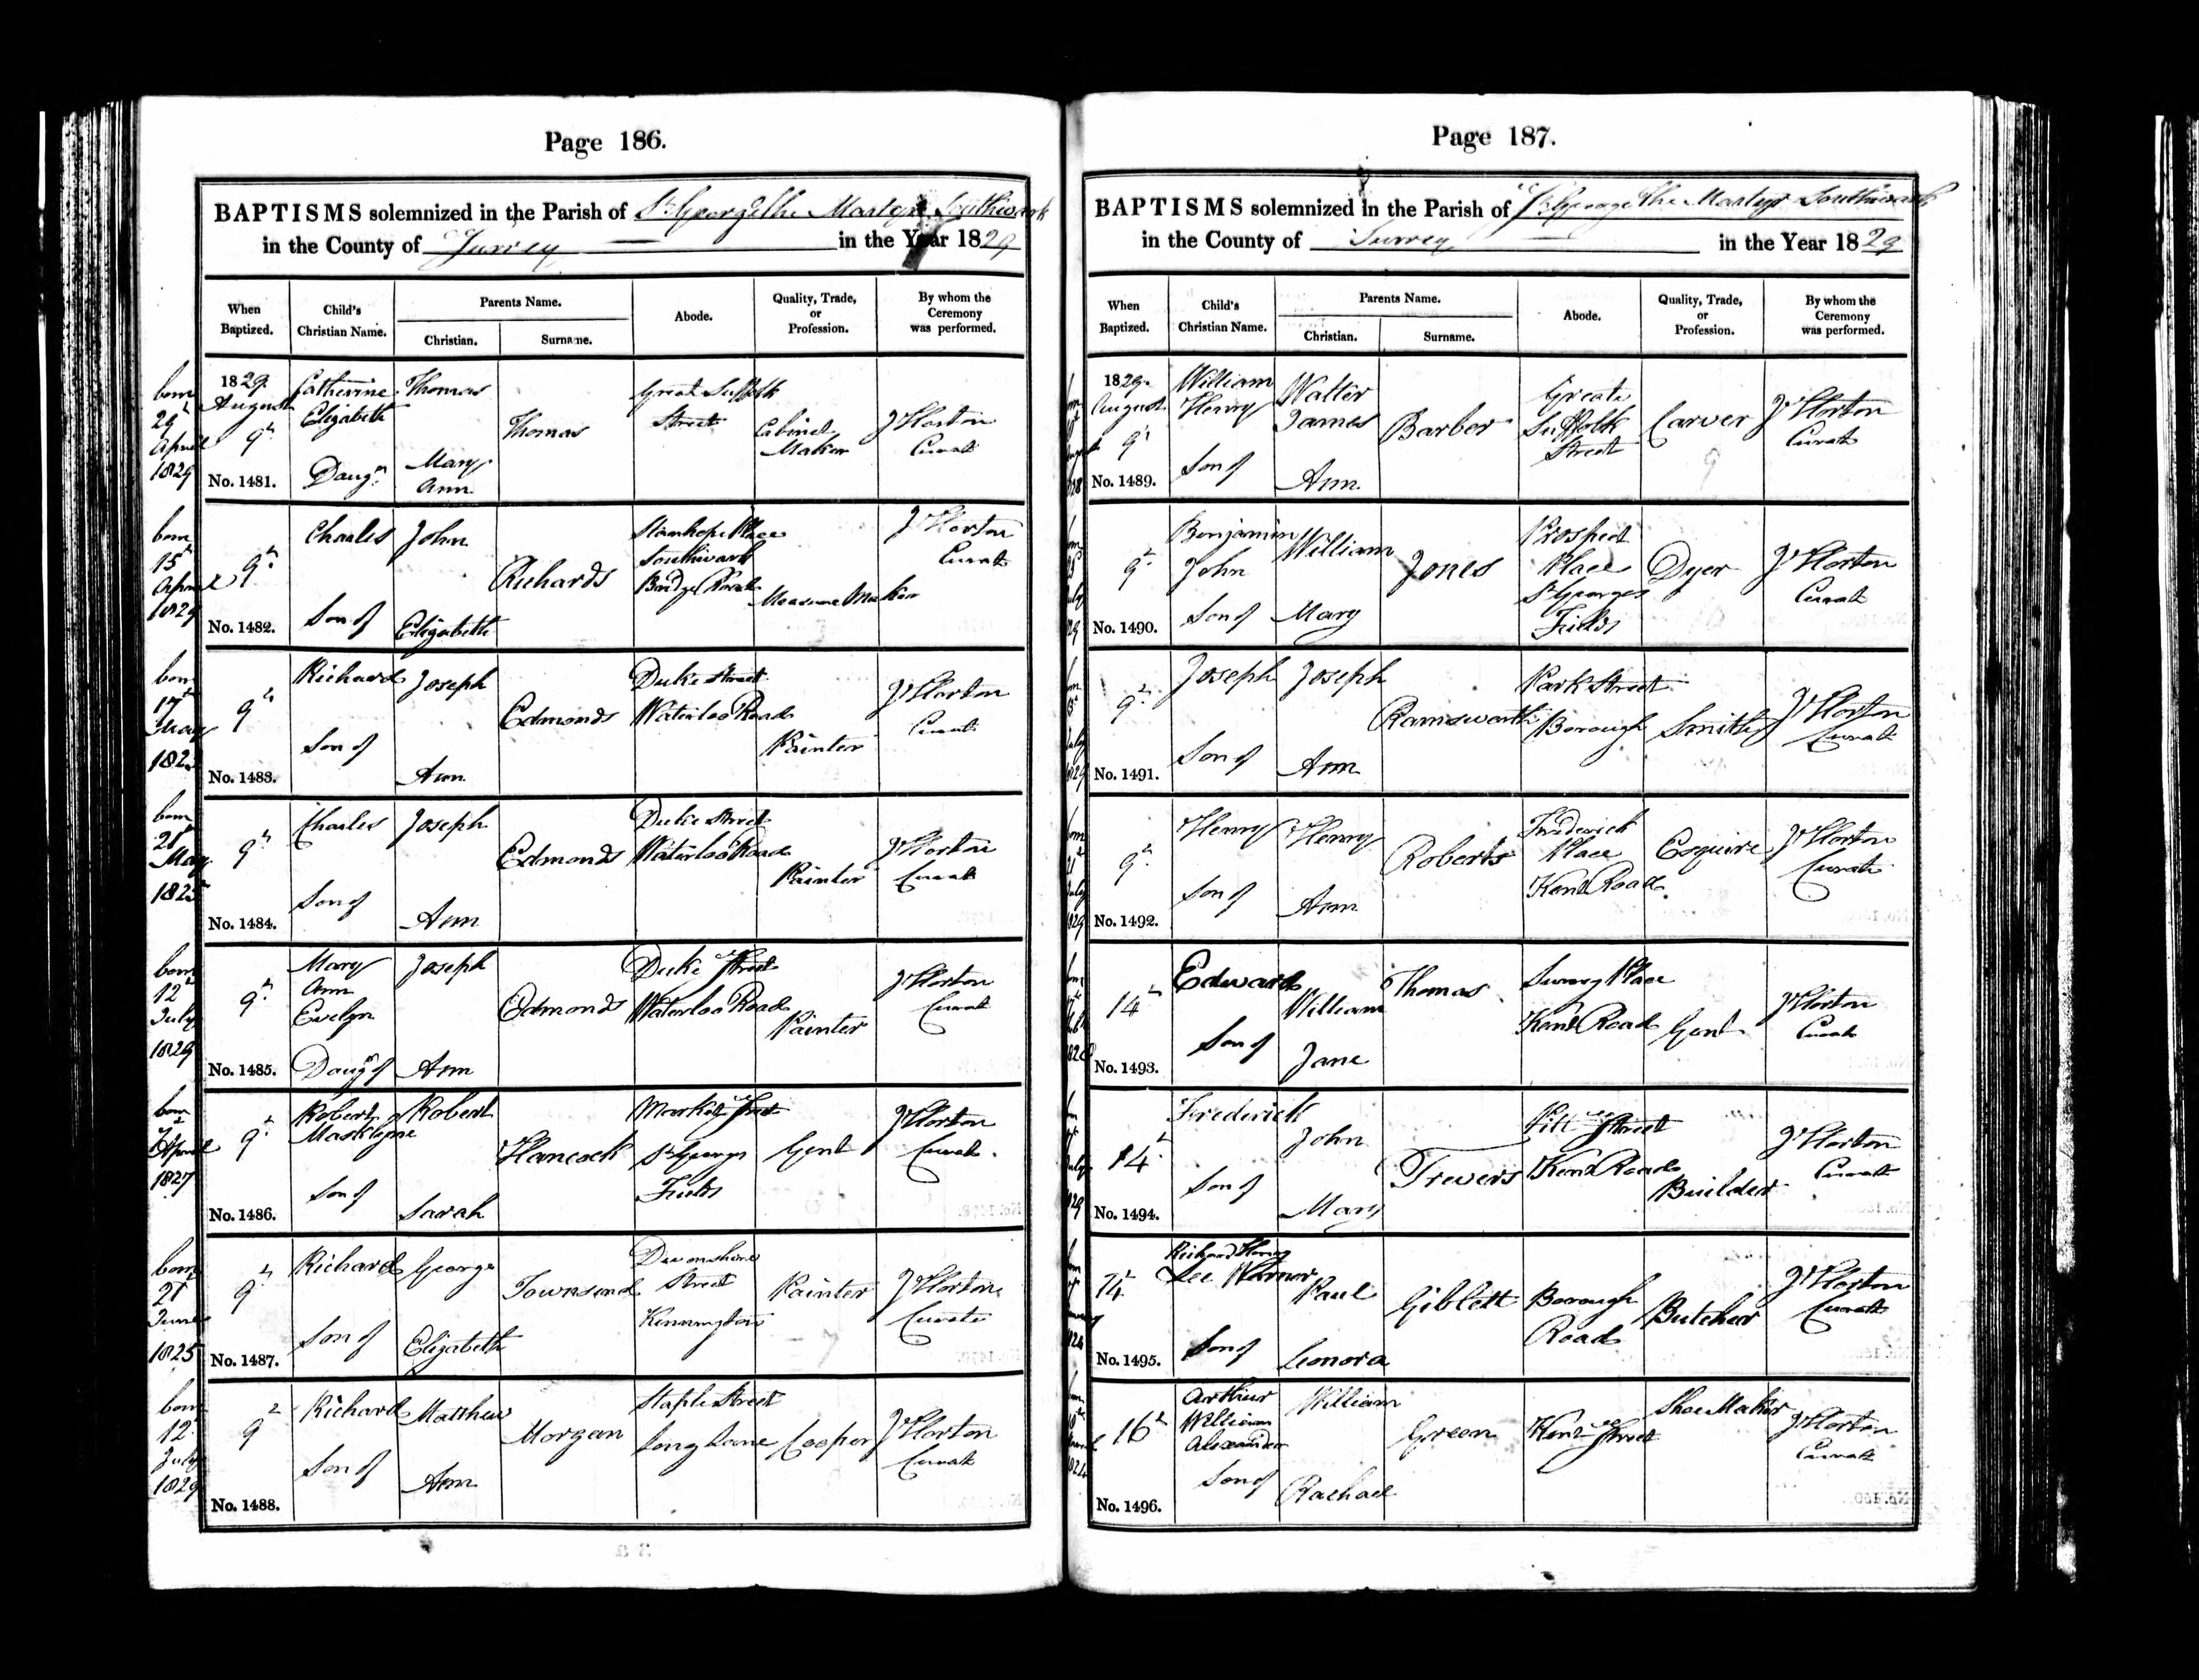 Page 186.
BAPTISMS solemnized in the Parish of St George the Martyr Southwark
in the County of Surrey in the Year 1829
When Baptized. Child's Christian Name. Parents Name. Christian. Surname. Abode. Quality, Trade, or Profession. By whom the Ceremony was performed.
born 29 April 1829
1829. August 9th No. 1481. Catherine Elizabeth Daugr Thomas Mary Ann Thomas Great Suffolk Street Cabinet Maker J Horton Curate
born 15th April 1829
9th No. 1482. Charles Son of John Elizabeth Richards Stanhope Place Southwark Bridge Road Measure Maker J Horton Curate
born 17th May
9th No. 1483. Richard Son of Joseph Ann Edmonds Duke Street Waterloo Road Painter J Horton Curate
born 21st May 1825
9th No. 1484. Charles Son of Joseph Ann Edmonds Duke Street Waterloo Road Painter J Horton Curate
born 12th July 1829
9th No. 1485. Mary Ann Evelyn Daugr of Joseph Ann Edmonds Duke Street Waterloo Road Painter J Horton Curate
born April 1827
9th No. 1486. Robert Maskleyne Son of Robert Sarah Hancock Market Street St Georges Fields Gent J Horton Curate
born 21st June 1825
9th No. 1487. Richard Son of George Elizabeth Townsend Devonshire Street Kennington Painter J Horton Curate
born 12th July 1829
9th No. 1488. Richard Son of Matthew Ann Morgan Staple Street Long Lane Cooper J Horton Curate
Page 187.
BAPTISMS solemnized in the Parish of St George the Martyr Southwark
in the County of Surrey in the Year 1829
When Baptized. Child's Christian Name. Parents Name. Christian. Surname. Abode. Quality, Trade, or Profession. By whom the Ceremony was performed.
1829. August 9th No. 1489. William Henry Son of Walter James Ann Barber Great Suffolk Street Carver J Horton Curate
9th No. 1490. Benjamin John Son of William Mary Jones Prospect Place St Georges Fields Dyer J Horton Curate
9th No. 1491. Joseph Son of Joseph Ann Ramsworth Park Street Borough Smith J Horton Curate
9th No. 1492. Henry Son of Henry Ann Roberts Frederick Place Kent Road Esquire J Horton Curate
14th No. 1493. Edward Son of William Jane Thomas Surrey Place Kent Road Gent J Horton Curate
14th No. 1494. Frederick Son of John Mary Trevers Pitt Street Kent Road Builder J Horton Curate
14th No. 1495. Richard Henry Lee Warner Son of Paul Leonora Giblett Borough Road Butcher J Horton Curate
16th No. 1496. Arthur William Alexander Son of William Rachael Green Kent Street Shoe Maker J Horton Curate